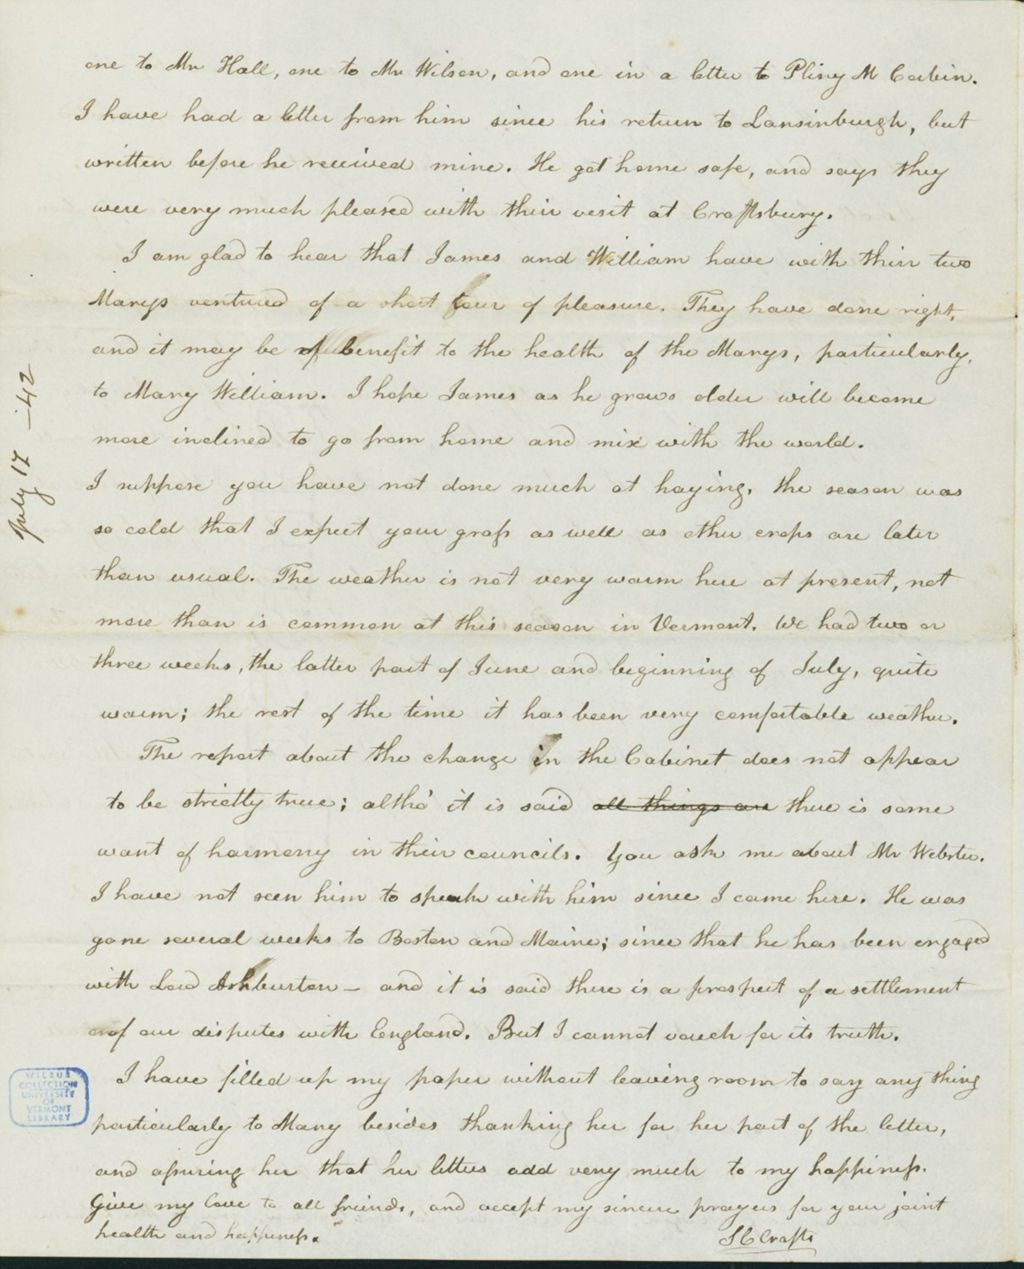 one to Mr Hall, one to Mr Wilson, and one in a letter to Pliny M Corbin.
I have had a letter from him since his return to Lansinburgh, but
written before he received mine. He got home safe, and says they
were very much pleased with their visit at Craftsbury.
I am glad to hear that James and William have with their two
Marys ventured of a short tour of pleasure. They have done right,
and it may be of benefit to the health of the Marys, particularly,
to Mary William. I hope James as he grows older will become
more inclined to go from home and mix with the world.
I suppose you have not done much at haying, the season was
so cold that I expect your grass as well as other crops are later
than usual. The weather is not very warm here at present, not
more than is common at this season in Vermont. We had two or
three weeks, the latter part of June and beginning of July, quite
warm; the rest of the time it has been very comfortable weather.
The report about the change in the Cabinet does not appear
to be strictly true; altho' it is said all things are there is some
want of harmony in their councils. You ask me about Mr Webster.
I have not seen him to speak with him since I came here. He was
gone several weeks to Boston and Maine; since that he has been engaged
with Lord Ashburton – and it is said there is a prospect of a settlement
of our disputes with England. But I cannot vouch for its truth.
I have filled up my paper without leaving room to say any thing
particularly to Mary besides thanking her for her part of the letter,
and assuring her that her letters add very much to my happiness.
Give my love to all friends, and accept my sincere prayers for your joint
health and happiness.
S C Crafts
July 17 –42
WILBUR
COLLECTION
UNIVERSITY
OF
VERMONT
LIBRARY